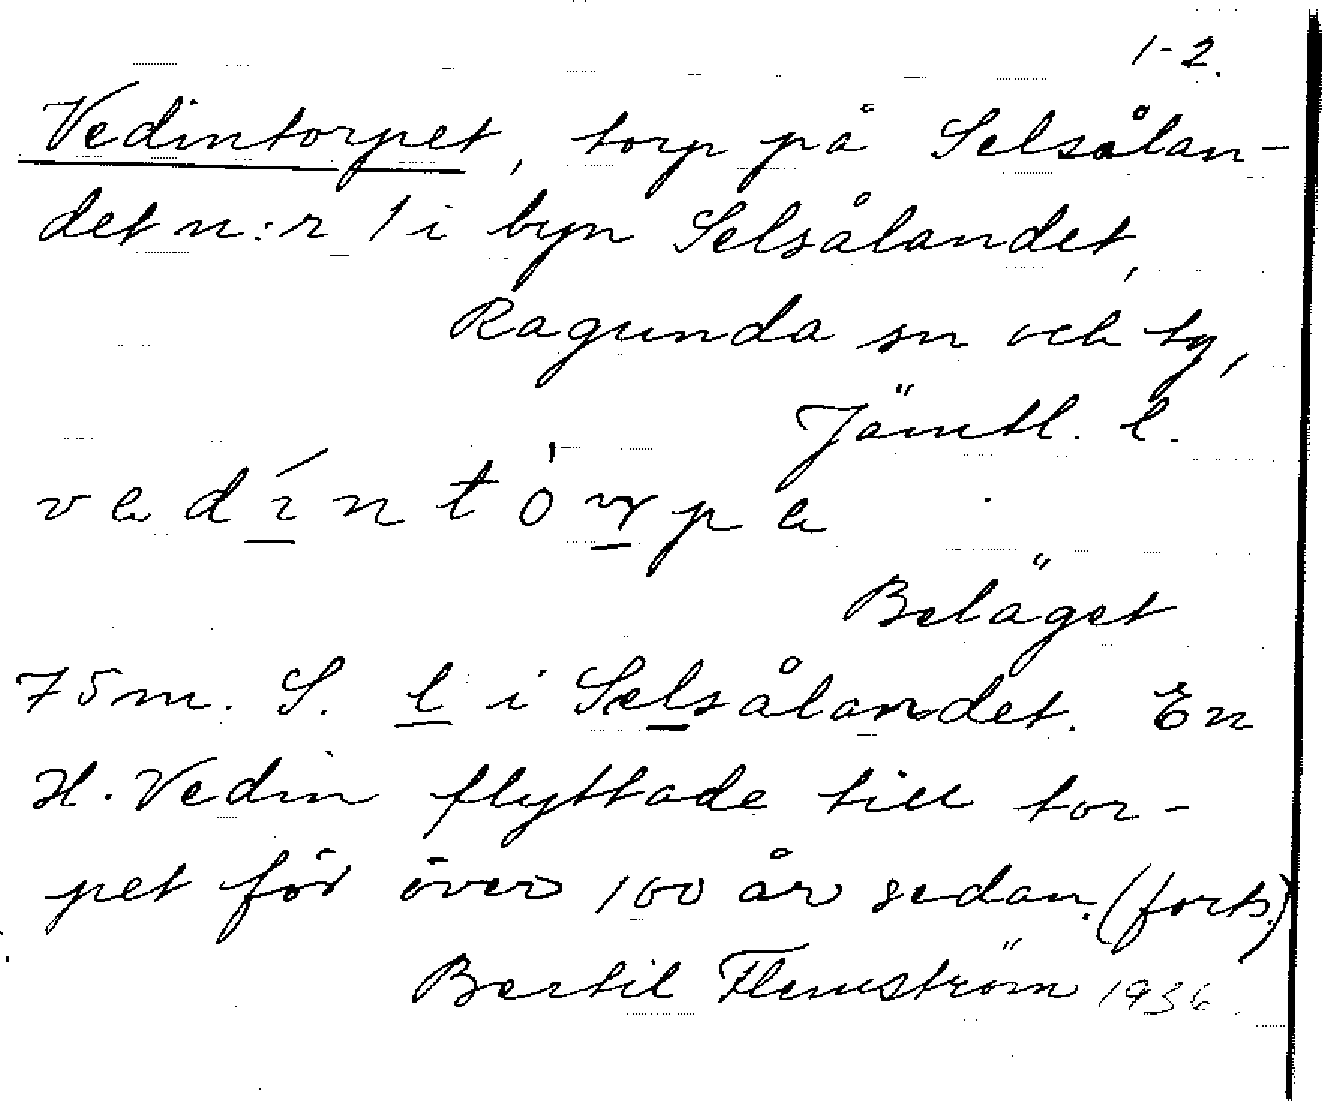 1-2.
Vedintorpet, torp på Selsålan-
det n:r 1 i byn Selsålandet,
Ragunda sn och tg,
Jämtl. l.
Beläget
75 m. S. l i Selsålandet. En
H. Vedin flyttade till tor-
pet för över 100 år sedan. (forts.)
Bertil Flemström 1936